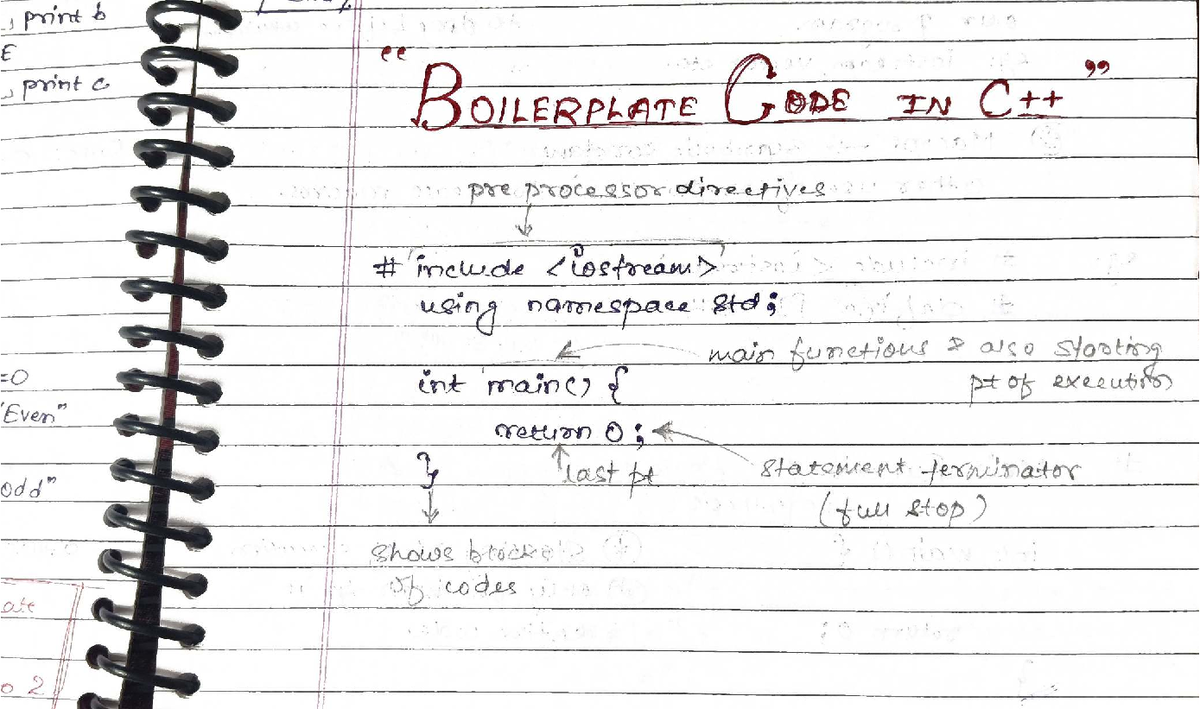 print b
E
print c
=0
"Even"
odd"
ate
o 2
“BOILERPLATE CODE IN C++”
pre processor directives
# include <iostream>
using namespace std;
main functions & also starting
pt of execution
int main() {
return 0;
}
last pt
statement terminator
(full stop)
shows blocks
of codes